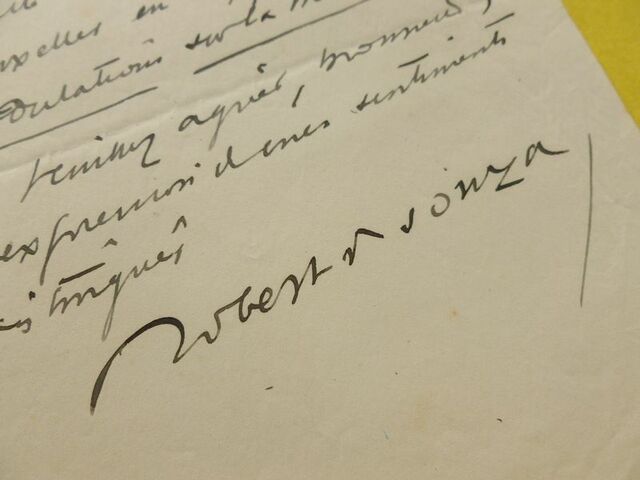 uxelles en
dulations sur la m
Veuillez agréer, monsieur,
expression de mes sentiments
distingués
Robert de Souza